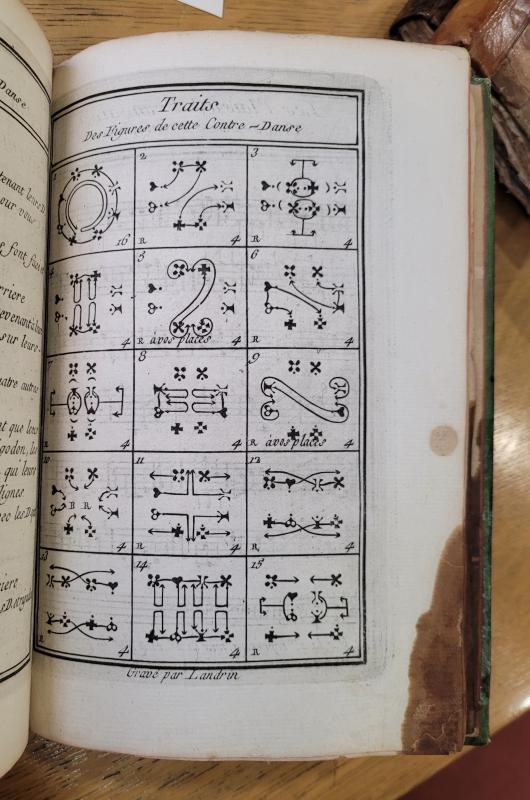 Danse
Traits
Des Figures de cette Contre-Danse
16
2
R 4
3
R 4
4
4
5
R àvos places 4
6
R 4
7
4
8
R 4
9
R àvos places 4
10
B R
4
11
R 4
12
R 4
13
R 4
14
R 4
15
R 4
Gravé par Landrin
tenant leurs
pour vous
font face
rriere
revenant à leurs
sur leurs
uatre autres
et que les
godon, les
qui leurs
lignes
vec les
riere